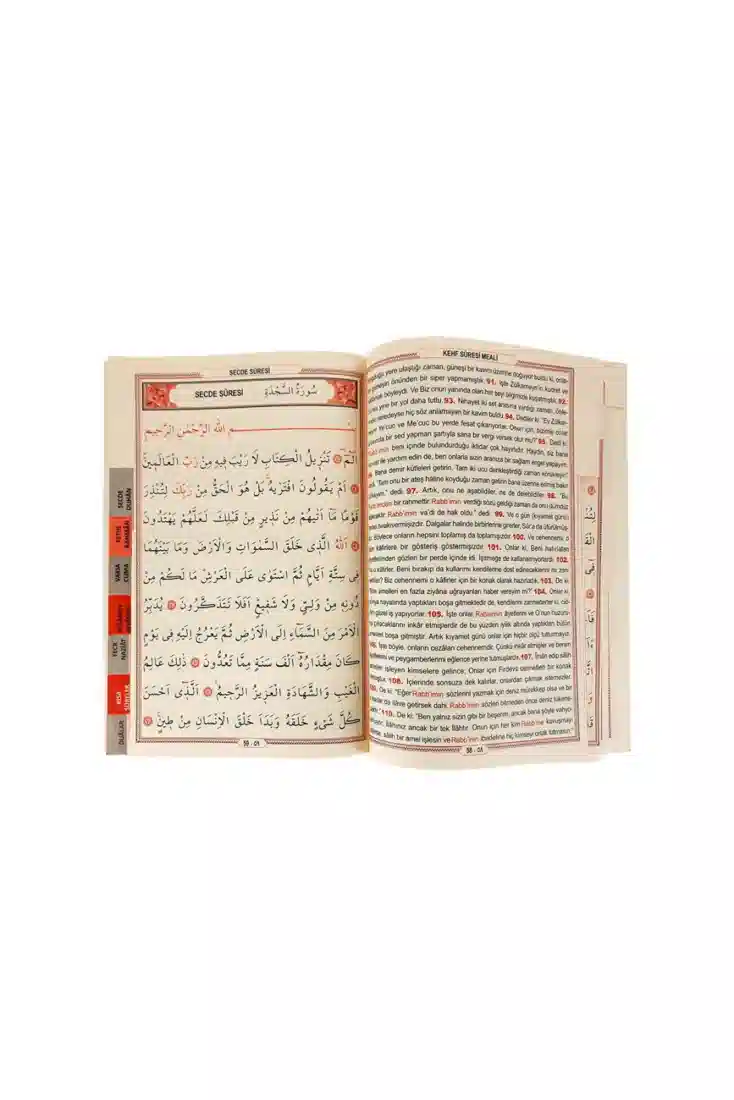 SECDE SÛRESİ
SECDE SÛRESİ سُورَةُ السَّجْدَةِ
بِسْــــمِ اللّٰهِ الرَّحْمٰنِ الرَّحٖيمِ
الٓمٓ ۞ تَنْزٖيلُ الْكِتَابِ لَا رَيْبَ فٖيهِ مِنْ رَبِّ الْعَالَمٖينَ
۞ اَمْ يَقُولُونَ افْتَرٰيهُ بَلْ هُوَ الْحَقُّ مِنْ رَبِّكَ لِتُنْذِرَ
قَوْمًا مَٓا اَتٰيهُمْ مِنْ نَذٖيرٍ مِنْ قَبْلِكَ لَعَلَّهُمْ يَهْتَدُونَ
۞ اَللّٰهُ الَّذٖى خَلَقَ السَّمٰوَاتِ وَالْاَرْضَ وَمَا بَيْنَهُمَا
فٖى سِتَّةِ اَيَّامٍ ثُمَّ اسْتَوٰى عَلَى الْعَرْشِ مَا لَكُمْ مِنْ
دُونِهٖ مِنْ وَلِىٍّ وَلَا شَفٖيعٍ اَفَلَا تَتَذَكَّرُونَ ۞ يُدَبِّرُ
الْاَمْرَ مِنَ السَّمَٓاءِ اِلَى الْاَرْضِ ثُمَّ يَعْرُجُ اِلَيْهِ فٖى يَوْمٍ
كَانَ مِقْدَارُهُٓ اَلْفَ سَنَةٍ مِمَّا تَعُدُّونَ ۞ ذٰلِكَ عَالِمُ
الْغَيْبِ وَالشَّهَادَةِ الْعَزٖيزُ الرَّحٖيمُ ۞ اَلَّذٖٓى اَحْسَنَ
كُلَّ شَىْءٍ خَلَقَهُ وَبَدَاَ خَلْقَ الْاِنْسَانِ مِنْ طٖينٍ ۞
59 - ٥٩
SECDE
DUHÂN
FETİH
RAHMÂN
VAKIA
CUMA
NAZİÂT
KISA
SÛRELER
DUÂLAR
KEHF SÛRESİ MEALİ
yere ulaştığı zaman, güneşi bir kavim üzerine doğuyor buldu ki, onlar
önünden bir siper yapmamıştık. 91. İşte Zülkarneyn'in kudret ve
böyleydi. Ve Biz onun yanında olan her şeyi bilgimizle kuşatmıştık. 92.
yine bir yol daha tuttu. 93. Nihayet iki set arasına vardığı zaman,
neredeyse hiç söz anlamayan bir kavim buldu. 94. Dediler ki: "Ey Zülkar-
Ye'cuc ve Me'cuc bu yerde fesat çıkarıyorlar. Onun için, bizimle onlar
bir sed yapman şartıyla sana bir vergi versek olur mu?" 95. Dedi ki:
Rabb'imin beni içinde bulundurduğu iktidar çok hayırlıdır. Haydin, siz bana
ile yardım edin de, ben onlarla sizin aranıza bir sağlam engel yapayım.
Bana demir kütleleri getirin. Tam iki ucu denkleştirdiği zaman körükleyin!"
"Tam onu bir ateş haline koyduğu zaman getirin bana üzerine erimiş bakır
dedi. 97. Artık, onu ne aşabildiler, ne de delebildiler. 98. "Bu
Rabb'imden bir rahmettir. Rabb'imin verdiği sözü geldiği zaman da onu dümdüz
Rabb'imin va'di de hak oldu." dedi. 99. Ve o gün (kıyamet günü)
bırakıvermişizdir. Dalgalar halinde birbirlerine girerler, Sûr'a da üfürülmüş-
Böylece onların hepsini toplamış da toplamışızdır. 100. Ve cehennemi, o
kâfirlere bir gösteriş göstermişizdir. 101. Onlar ki, Beni hatırlatan
gözleri bir perde içinde idi. İşitmeye de katlanamıyorlardı. 102.
o kâfirler, Beni bırakıp da kullarımı kendilerine dost edineceklerini mi
Biz cehennemi o kâfirler için bir konak olarak hazırladık. 103. De ki:
amelleri en fazla ziyâna uğrayanları haber vereyim mi?" 104. Onlar ki,
hayatında yaptıkları boşa gitmektedir de, kendilerini zannederler ki,
güzel iş yapıyorlar. 105. İşte onlar, Rabb'lerinin âyetlerini ve O'nun huzuru-
çıkacaklarını inkâr etmişlerdir de bu yüzden iyilik altında yaptıkları bütün
boşa gitmiştir. Artık kıyamet günü onlar için hiçbir ölçü tutturmayız.
106. İşte böyle, onların cezâları cehennemdir. Çünkü inkâr etmişler ve benim
ve peygamberlerimi eğlence yerine tutmuşlardır. 107. İmân edip sâlih
işleyen kimselere gelince, Onlar için Firdevs cennetleri bir konak
108. İçlerinde sonsuza dek kalırlar, onlardan çıkmak istemezler.
109. De ki: "Eğer Rabb'imin sözlerini yazmak için deniz mürekkep olsa ve bir
da ilâve getirsek dahi, Rabb'imin sözleri bitmeden önce deniz tüken-
110. De ki: "Ben yalnız sizin gibi bir beşerim, ancak bana şöyle vahyo-
İlâhınız ancak bir tek İlâhtır. Onun için her kim Rabb'ine kavuşmayı
sâlih bir amel işlesin ve Rabb'inin ibadetine hiç kimseyi ortak tutmasın."
58 - ٥٨